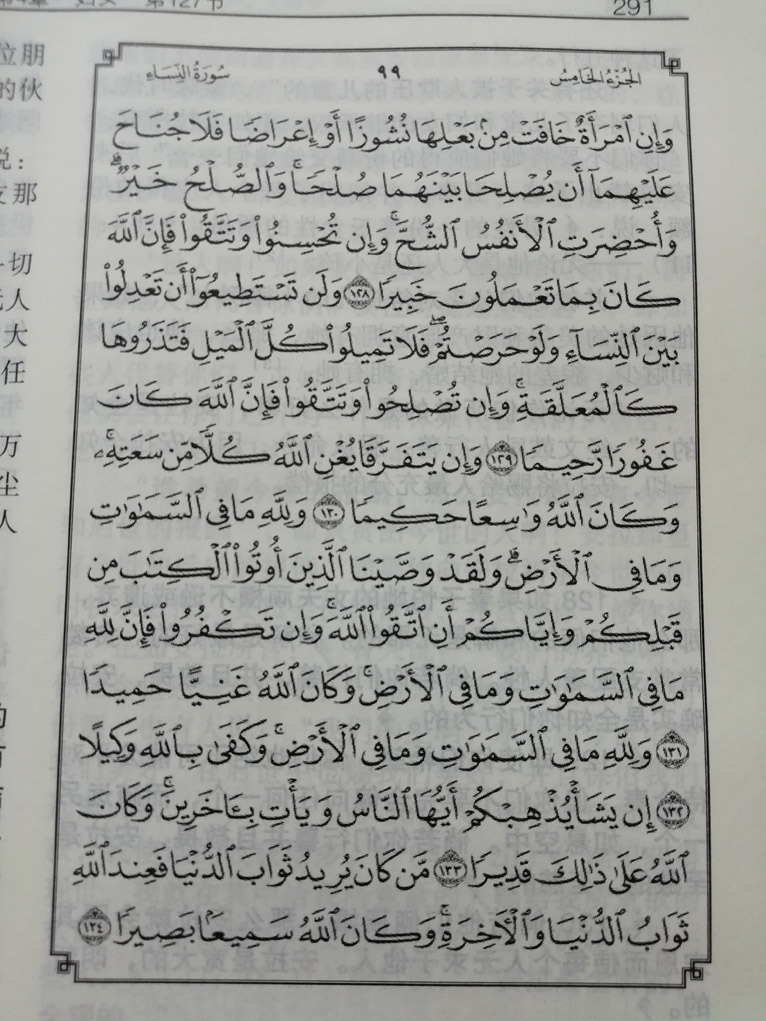 291
第127节
الجزء الخامس ٩٩ سورة النساء
وَإِنِ ٱمْرَأَةٌ خَافَتْ مِنۢ بَعْلِهَا نُشُوزًا أَوْ إِعْرَاضًا فَلَا جُنَاحَ
عَلَيْهِمَآ أَن يُصْلِحَا بَيْنَهُمَا صُلْحًا ۚ وَٱلصُّلْحُ خَيْرٌ ۗ
وَأُحْضِرَتِ ٱلْأَنفُسُ ٱلشُّحَّ ۚ وَإِن تُحْسِنُوا۟ وَتَتَّقُوا۟ فَإِنَّ ٱللَّهَ
كَانَ بِمَا تَعْمَلُونَ خَبِيرًا ١٢٨ وَلَن تَسْتَطِيعُوٓا۟ أَن تَعْدِلُوا۟
بَيْنَ ٱلنِّسَآءِ وَلَوْ حَرَصْتُمْ ۖ فَلَا تَمِيلُوا۟ كُلَّ ٱلْمَيْلِ فَتَذَرُوهَا
كَٱلْمُعَلَّقَةِ ۚ وَإِن تُصْلِحُوا۟ وَتَتَّقُوا۟ فَإِنَّ ٱللَّهَ كَانَ
غَفُورًا رَّحِيمًا ١٢٩ وَإِن يَتَفَرَّقَا يُغْنِ ٱللَّهُ كُلًّا مِّن سَعَتِهِۦ ۚ
وَكَانَ ٱللَّهُ وَٰسِعًا حَكِيمًا ١٣٠ وَلِلَّهِ مَا فِى ٱلسَّمَٰوَٰتِ
وَمَا فِى ٱلْأَرْضِ ۗ وَلَقَدْ وَصَّيْنَا ٱلَّذِينَ أُوتُوا۟ ٱلْكِتَٰبَ مِن
قَبْلِكُمْ وَإِيَّاكُمْ أَنِ ٱتَّقُوا۟ ٱللَّهَ ۚ وَإِن تَكْفُرُوا۟ فَإِنَّ لِلَّهِ
مَا فِى ٱلسَّمَٰوَٰتِ وَمَا فِى ٱلْأَرْضِ ۚ وَكَانَ ٱللَّهُ غَنِيًّا حَمِيدًا
١٣١ وَلِلَّهِ مَا فِى ٱلسَّمَٰوَٰتِ وَمَا فِى ٱلْأَرْضِ ۚ وَكَفَىٰ بِٱللَّهِ وَكِيلًا
١٣٢ إِن يَشَأْ يُذْهِبْكُمْ أَيُّهَا ٱلنَّاسُ وَيَأْتِ بِـَٔاخَرِينَ ۚ وَكَانَ
ٱللَّهُ عَلَىٰ ذَٰلِكَ قَدِيرًا ١٣٣ مَّن كَانَ يُرِيدُ ثَوَابَ ٱلدُّنْيَا فَعِندَ ٱللَّهِ
ثَوَابُ ٱلدُّنْيَا وَٱلْءَاخِرَةِ ۚ وَكَانَ ٱللَّهُ سَمِيعًۢا بَصِيرًا ١٣٤
位朋
的伙
说：
支那
一切
人
大
任
万
尘
人
的